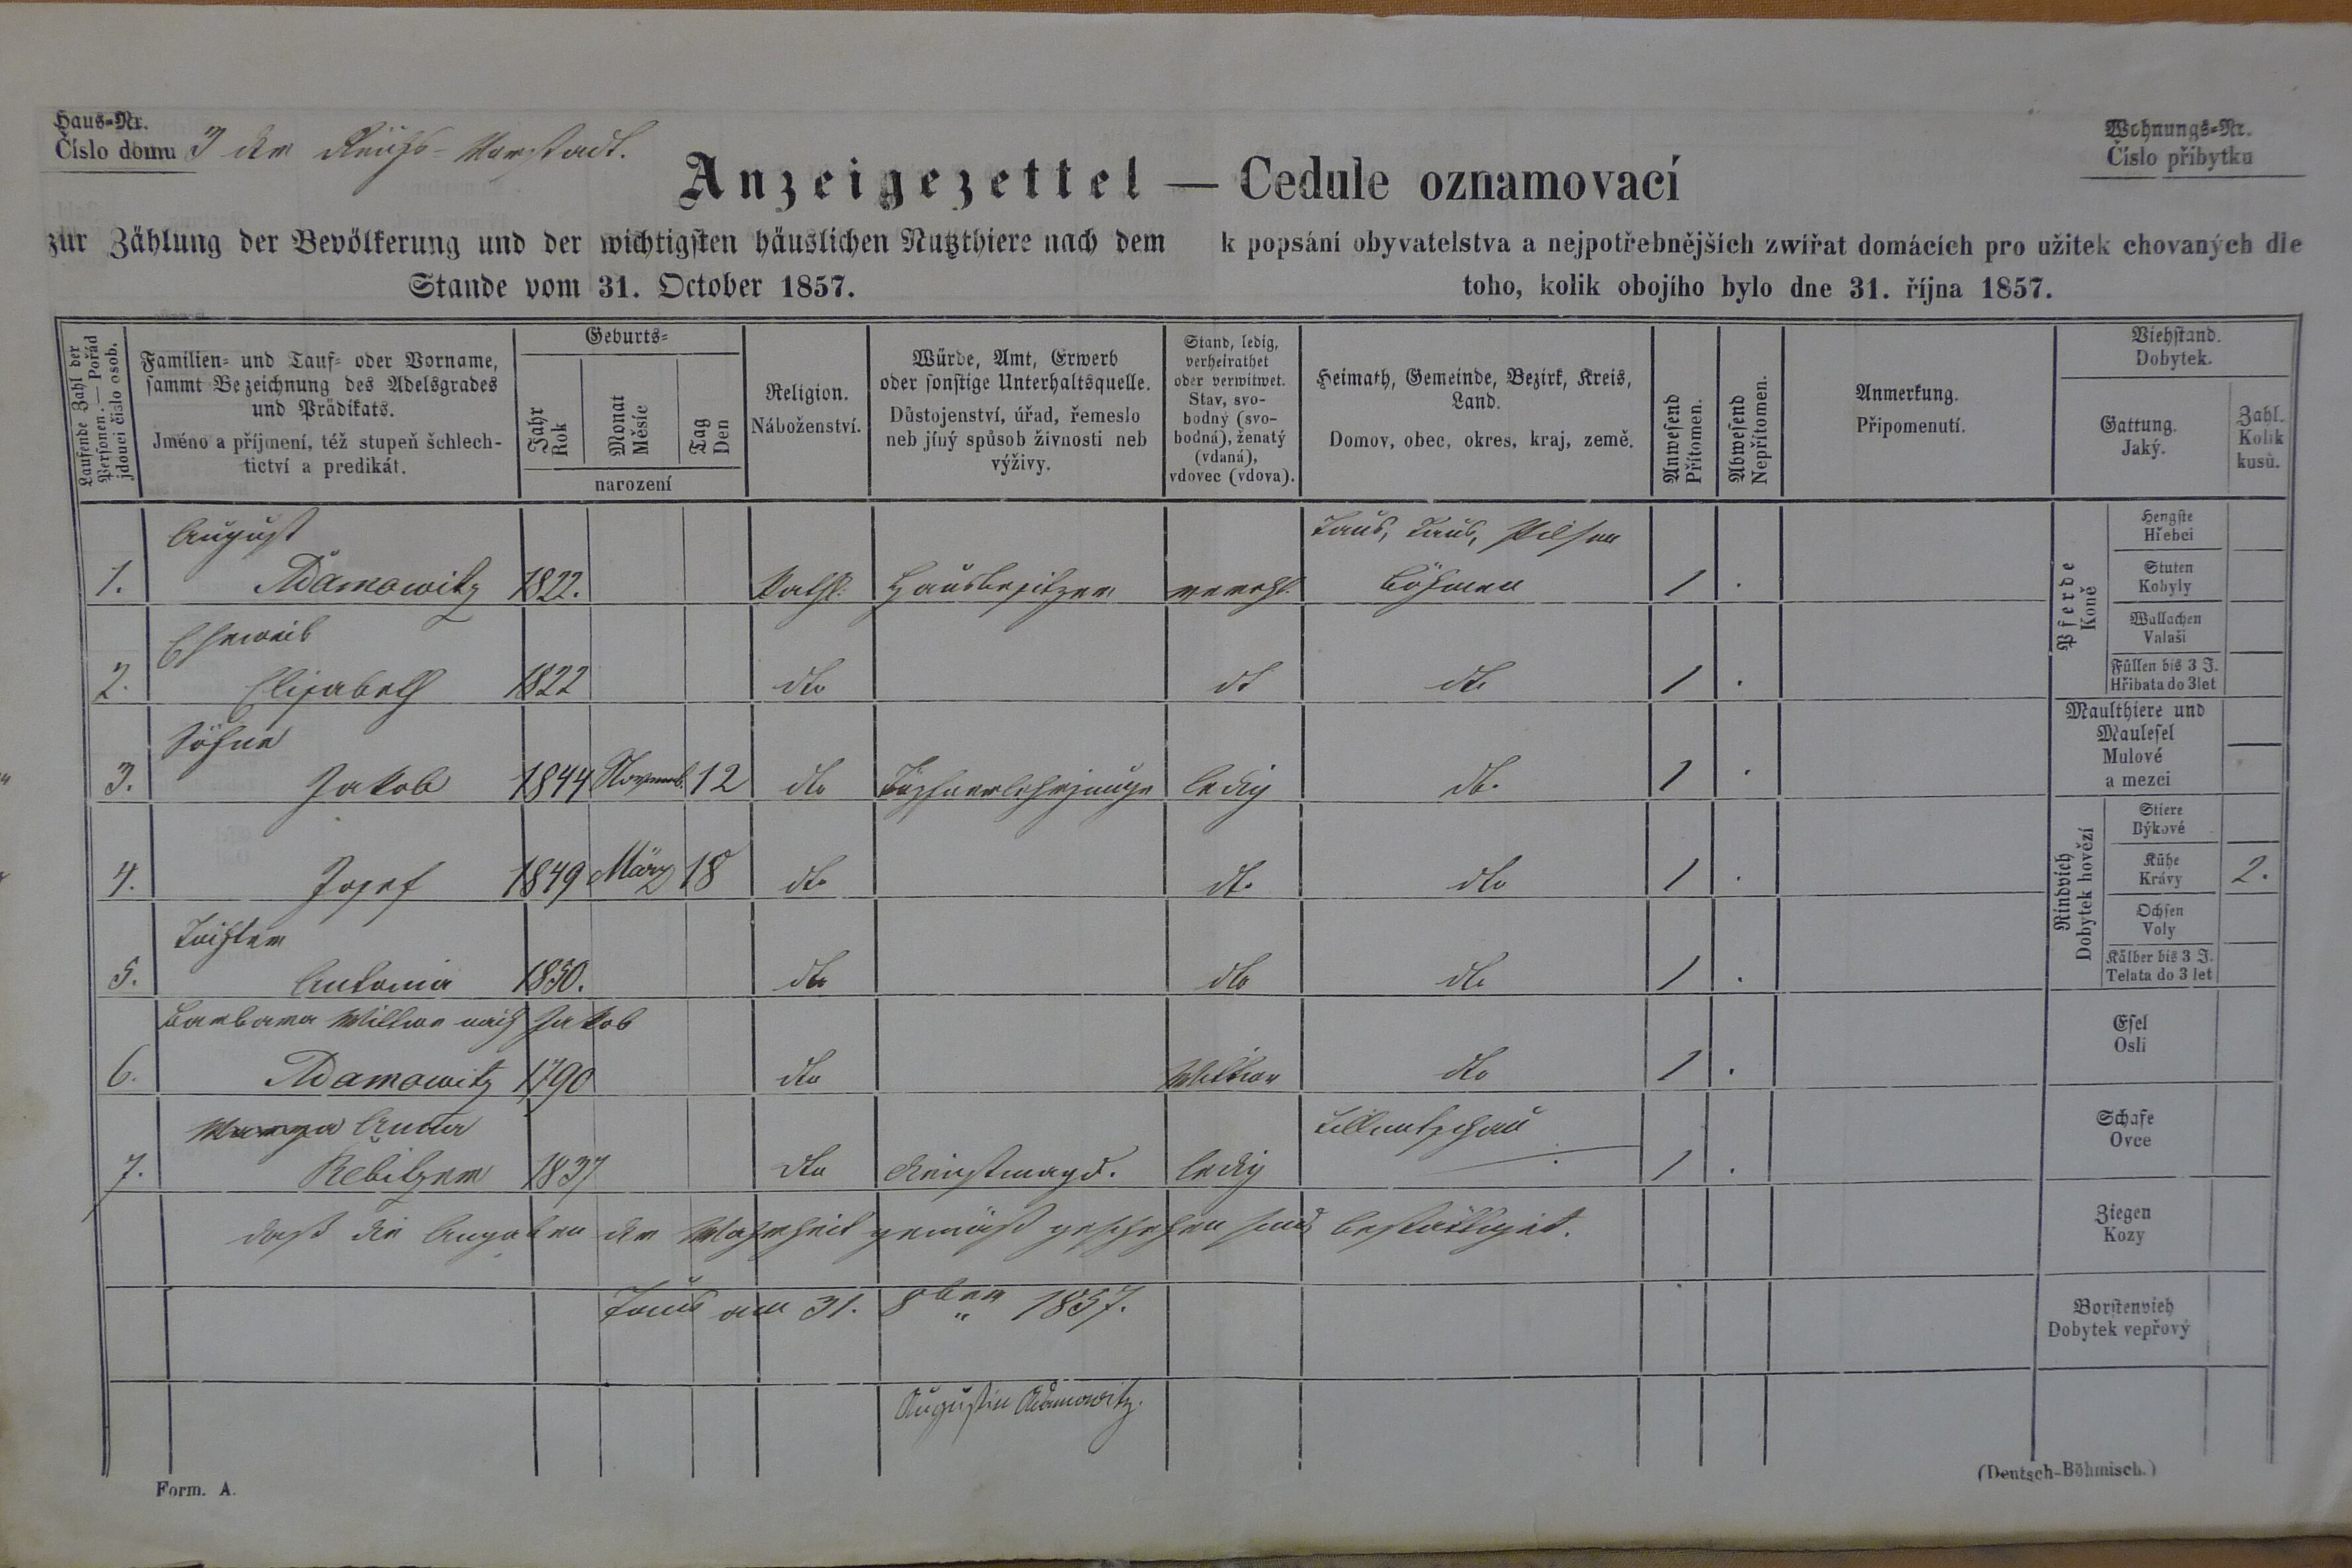 Haus-Nr.
Číslo domu 3 der Reichs-Vorstadt.
Wohnungs-Nr.
Číslo příbytku
Anzeigezettel — Cedule oznamovací
zur Zählung der Bevölkerung und der wichtigsten häuslichen Nutzthiere nach dem
Stande vom 31. October 1857.
k popsání obyvatelstva a nejpotřebnějších zwířat domácích pro užitek chovaných dle
toho, kolik obojího bylo dne 31. října 1857.
Laufende Zahl der
Personen. — Pořád
jdoucí číslo osob.
Familien- und Tauf- oder Vorname,
sammt Bezeichnung des Adelsgrades
und Prädikats.
Jméno a příjmení, též stupeň šchlech-
tictví a predikát.
Geburts-
Jahr
Rok
Monat
Měsíc
Tag
Den
narození
Religion.
Náboženství.
Würde, Amt, Erwerb
oder sonstige Unterhaltsquelle.
Důstojenství, úřad, řemeslo
neb jíný spůsob živnosti neb
výživy.
Stand, ledig,
verheirathet
oder verwitwet.
Stav, svo-
bodný (svo-
bodná), ženatý
(vdaná),
vdovec (vdova).
Heimath, Gemeinde, Bezirk, Kreis,
Land.
Domov, obec, okres, kraj, země.
Anwesend
Přítomen.
Abwesend
Nepřítomen.
Anmerkung.
Připomenutí.
Viehstand.
Dobytek.
Gattung.
Jaký.
Zahl.
Kolik
kusů.
August Taus, Taus, Pilsen
1. Adamowitz 1822. Kathl. Hausbesitzer verehl. Böhmen 1 .
Eheweib
2. Elisabeth 1822 dto dt dto 1 .
Söhne
3. Jakob 1844 Novemb. 12 dto Töpfnerlehrjunge ledig dto. 1 .
4. Josef 1849 März 18 dto dto dto 1 .
Tochter
5. Antonia 1850. dto dto dto 1 .
Barbara Wittwe nach Jakob
6. Adamowitz 1790 dto Wittwe dto 1 .
Anna
7. Rebitzer 1837 dto Dienstmagd. ledig 1 .
daß die Angaben der Wahrheit gemäß geschehen sind bestättiget.
Taus am 31. 8ber 1857.
Augustin Adamowitz.
Pferde
Koně
Hengste
Hřebci
Stuten
Kobyly
Wallachen
Valaši
Füllen bis 3 J.
Hřibata do 3let
Maulthiere und
Maulesel
Mulové
a mezci
Rindvieh
Dobytek hovězí
Stiere
Býkové
Kühe
Krávy 2.
Ochsen
Voly
Kälber bis 3 J.
Telata do 3 let
Esel
Osli
Schafe
Ovce
Ziegen
Kozy
Borstenvieh
Dobytek vepřový
Form. A.
(Deutsch-Böhmisch.)